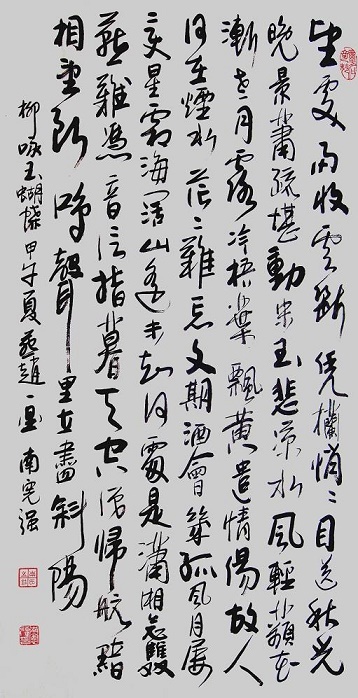 望處雨收雲斷凭欄悄〻目送秋光
晚景蕭疏堪動宋玉悲凉水風輕蘋花
漸老月露冷梧葉飄黃遣情傷故人
何在煙水茫〻難忘文期酒會幾孤風月屢
變星霜海闊山遥未知何處是瀟湘念雙
燕難憑音信指暮天空識歸航黯
相望斷鴻聲里立盡斜陽
柳咏玉蝴蝶甲午夏燕趙一墨南憲强